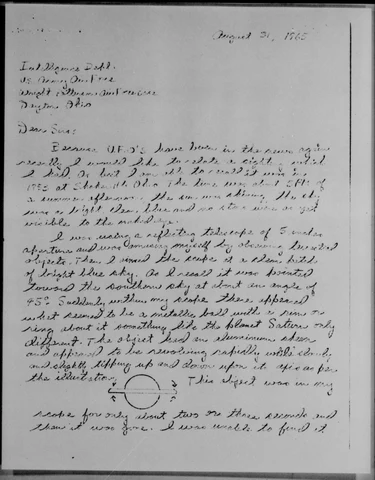 August 31, 1965
Intelligence Dept.
U.S. Army Air Force
Wright Patterson Air Force Base
Dayton Ohio
Dear Sirs:
Because U.F.O's have been in the news again
recently I would like to relate a sight, which
I had. As best I am able to recall it was in
1953 at Ohio. The time was about 5 P.M. of
a summer afternoon. The sun was shining the sky
was a bright clear blue and no stars were as yet
visible to the naked eye.
I was using a reflecting telescope of 5 inches
aperture and was amusing myself by observing terrestrial
objects. Then I moved the scope at a clear patch
of bright blue sky. As I recall it was pointed
toward the southern sky at about an angle of
45° Suddenly within my scope there appeared
what seemed to be a metallic ball with a rim or
ring about it something like the planet Saturn only
different. The object had an aluminum sheen
and appeared to be revolving rapidly while slowly
and slightly tipping up and down upon its axis as per
the illustration. This object was in my
scope for only about two or three seconds and
then it was gone. I was unable to find it